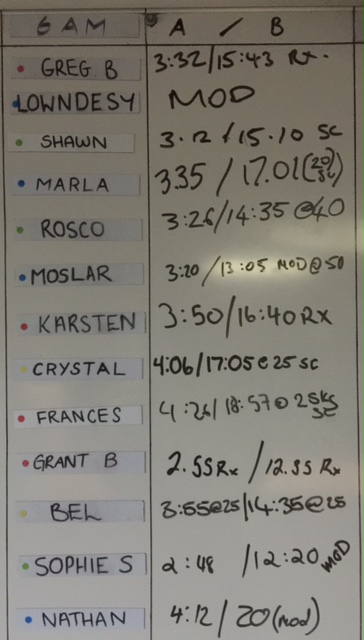 6 AM A / B
GREG B 3:32/15:43 Rx.
LOWNDESY MOD
SHAWN 3.12 / 15.10 SC
MARLA 335 / 17.01 (20) SC
ROSCO 3:26/14:35 @40
MOSLAR 3:20 / 13:05 MOD@50
KARSTEN 3:50/16:40 RX
CRYSTAL 4:06/17:05@25 SC
FRANCES 4:26/18:57@25KG SC
GRANT B 2.55Rx / 12.55 Rx
BEL 3:55@25/14:35@25
SOPHIE S 2:48 /12:20 MOD
NATHAN 4:12 / 20 (mod)